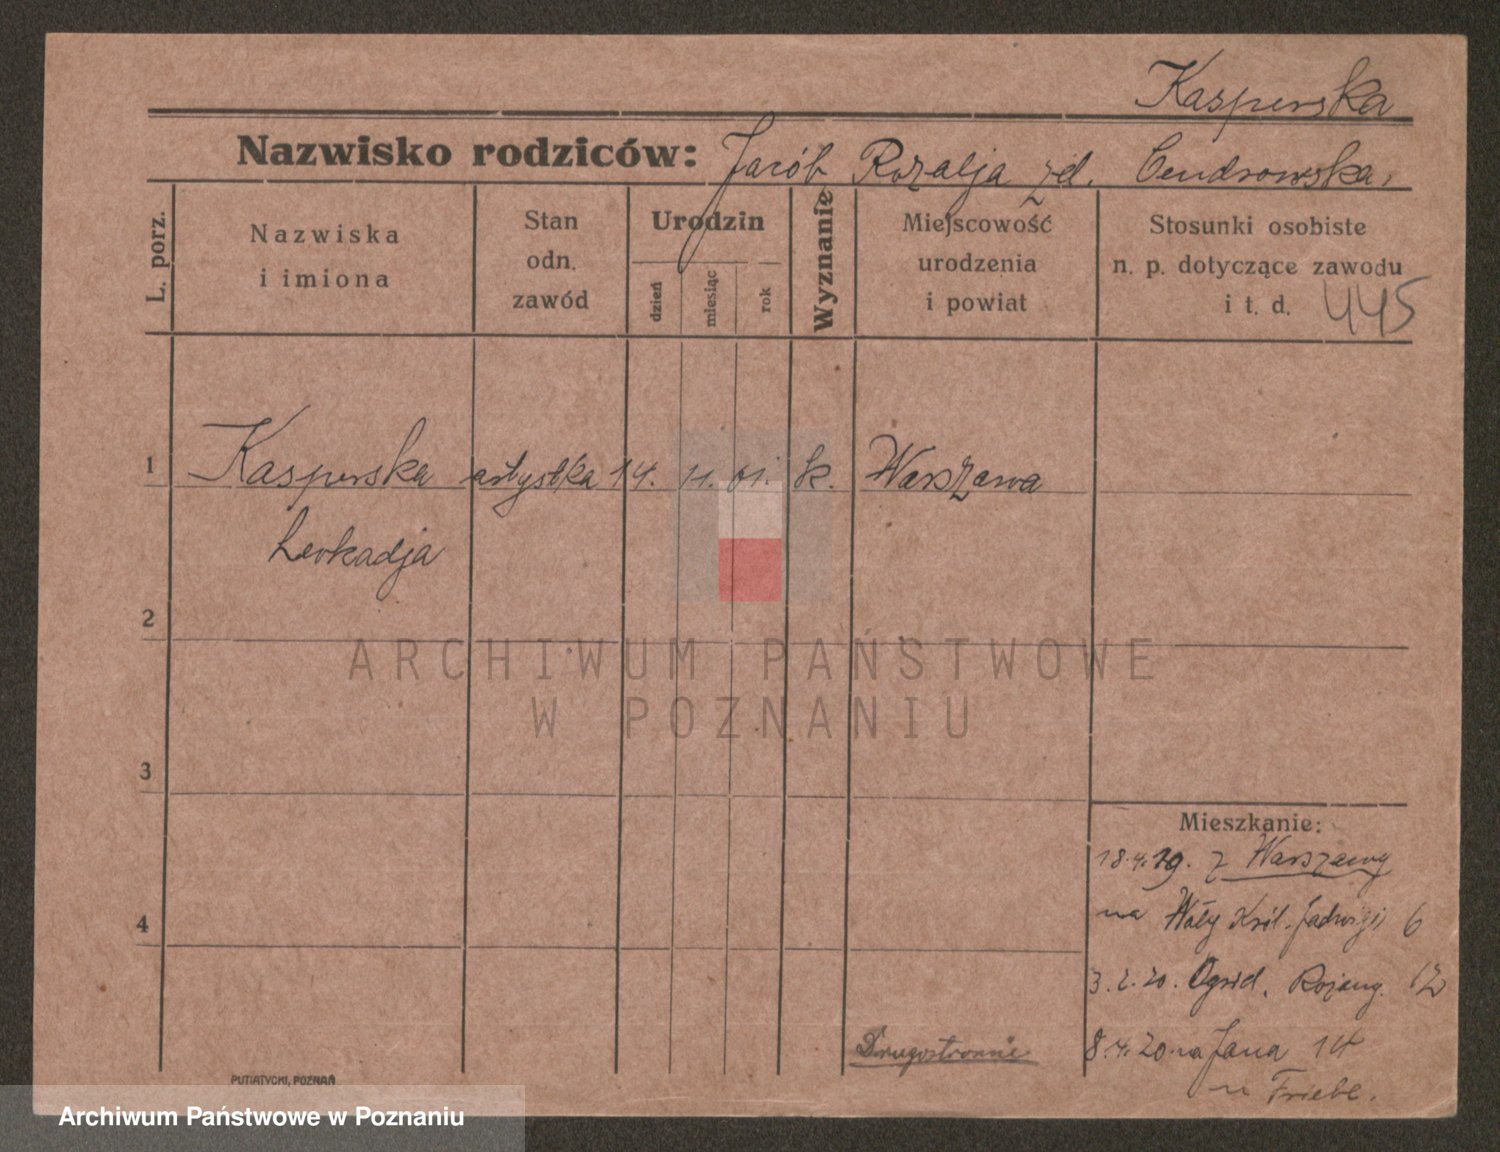 Kasperska
Nazwisko rodziców: Jacób Rozalja zd. Cendrowska.
L. porz.
Nazwiska
i imiona
Stan
odn.
zawód
Urodzin
dzień
miesiąc
rok
Wyznanie
Miejscowość
urodzenia
i powiat
Stosunki osobiste
n. p. dotyczące zawodu
i t. d. 445
1 Kasperska artystka 14. 11. 01. k. Warszawa
Leokadja
2
3
4
ARCHIWUM PAŃSTWOWE
W POZNANIU
Mieszkanie:
18.4.19. z Warszawy
na Wały Król. Jadwigi 6
3.2.20. Ogród. 12
Drugostronnie
8.4.20 na Jana 14
u Friebe.
PUTIATYCKI, POZNAŃ
Archiwum Państwowe w Poznaniu